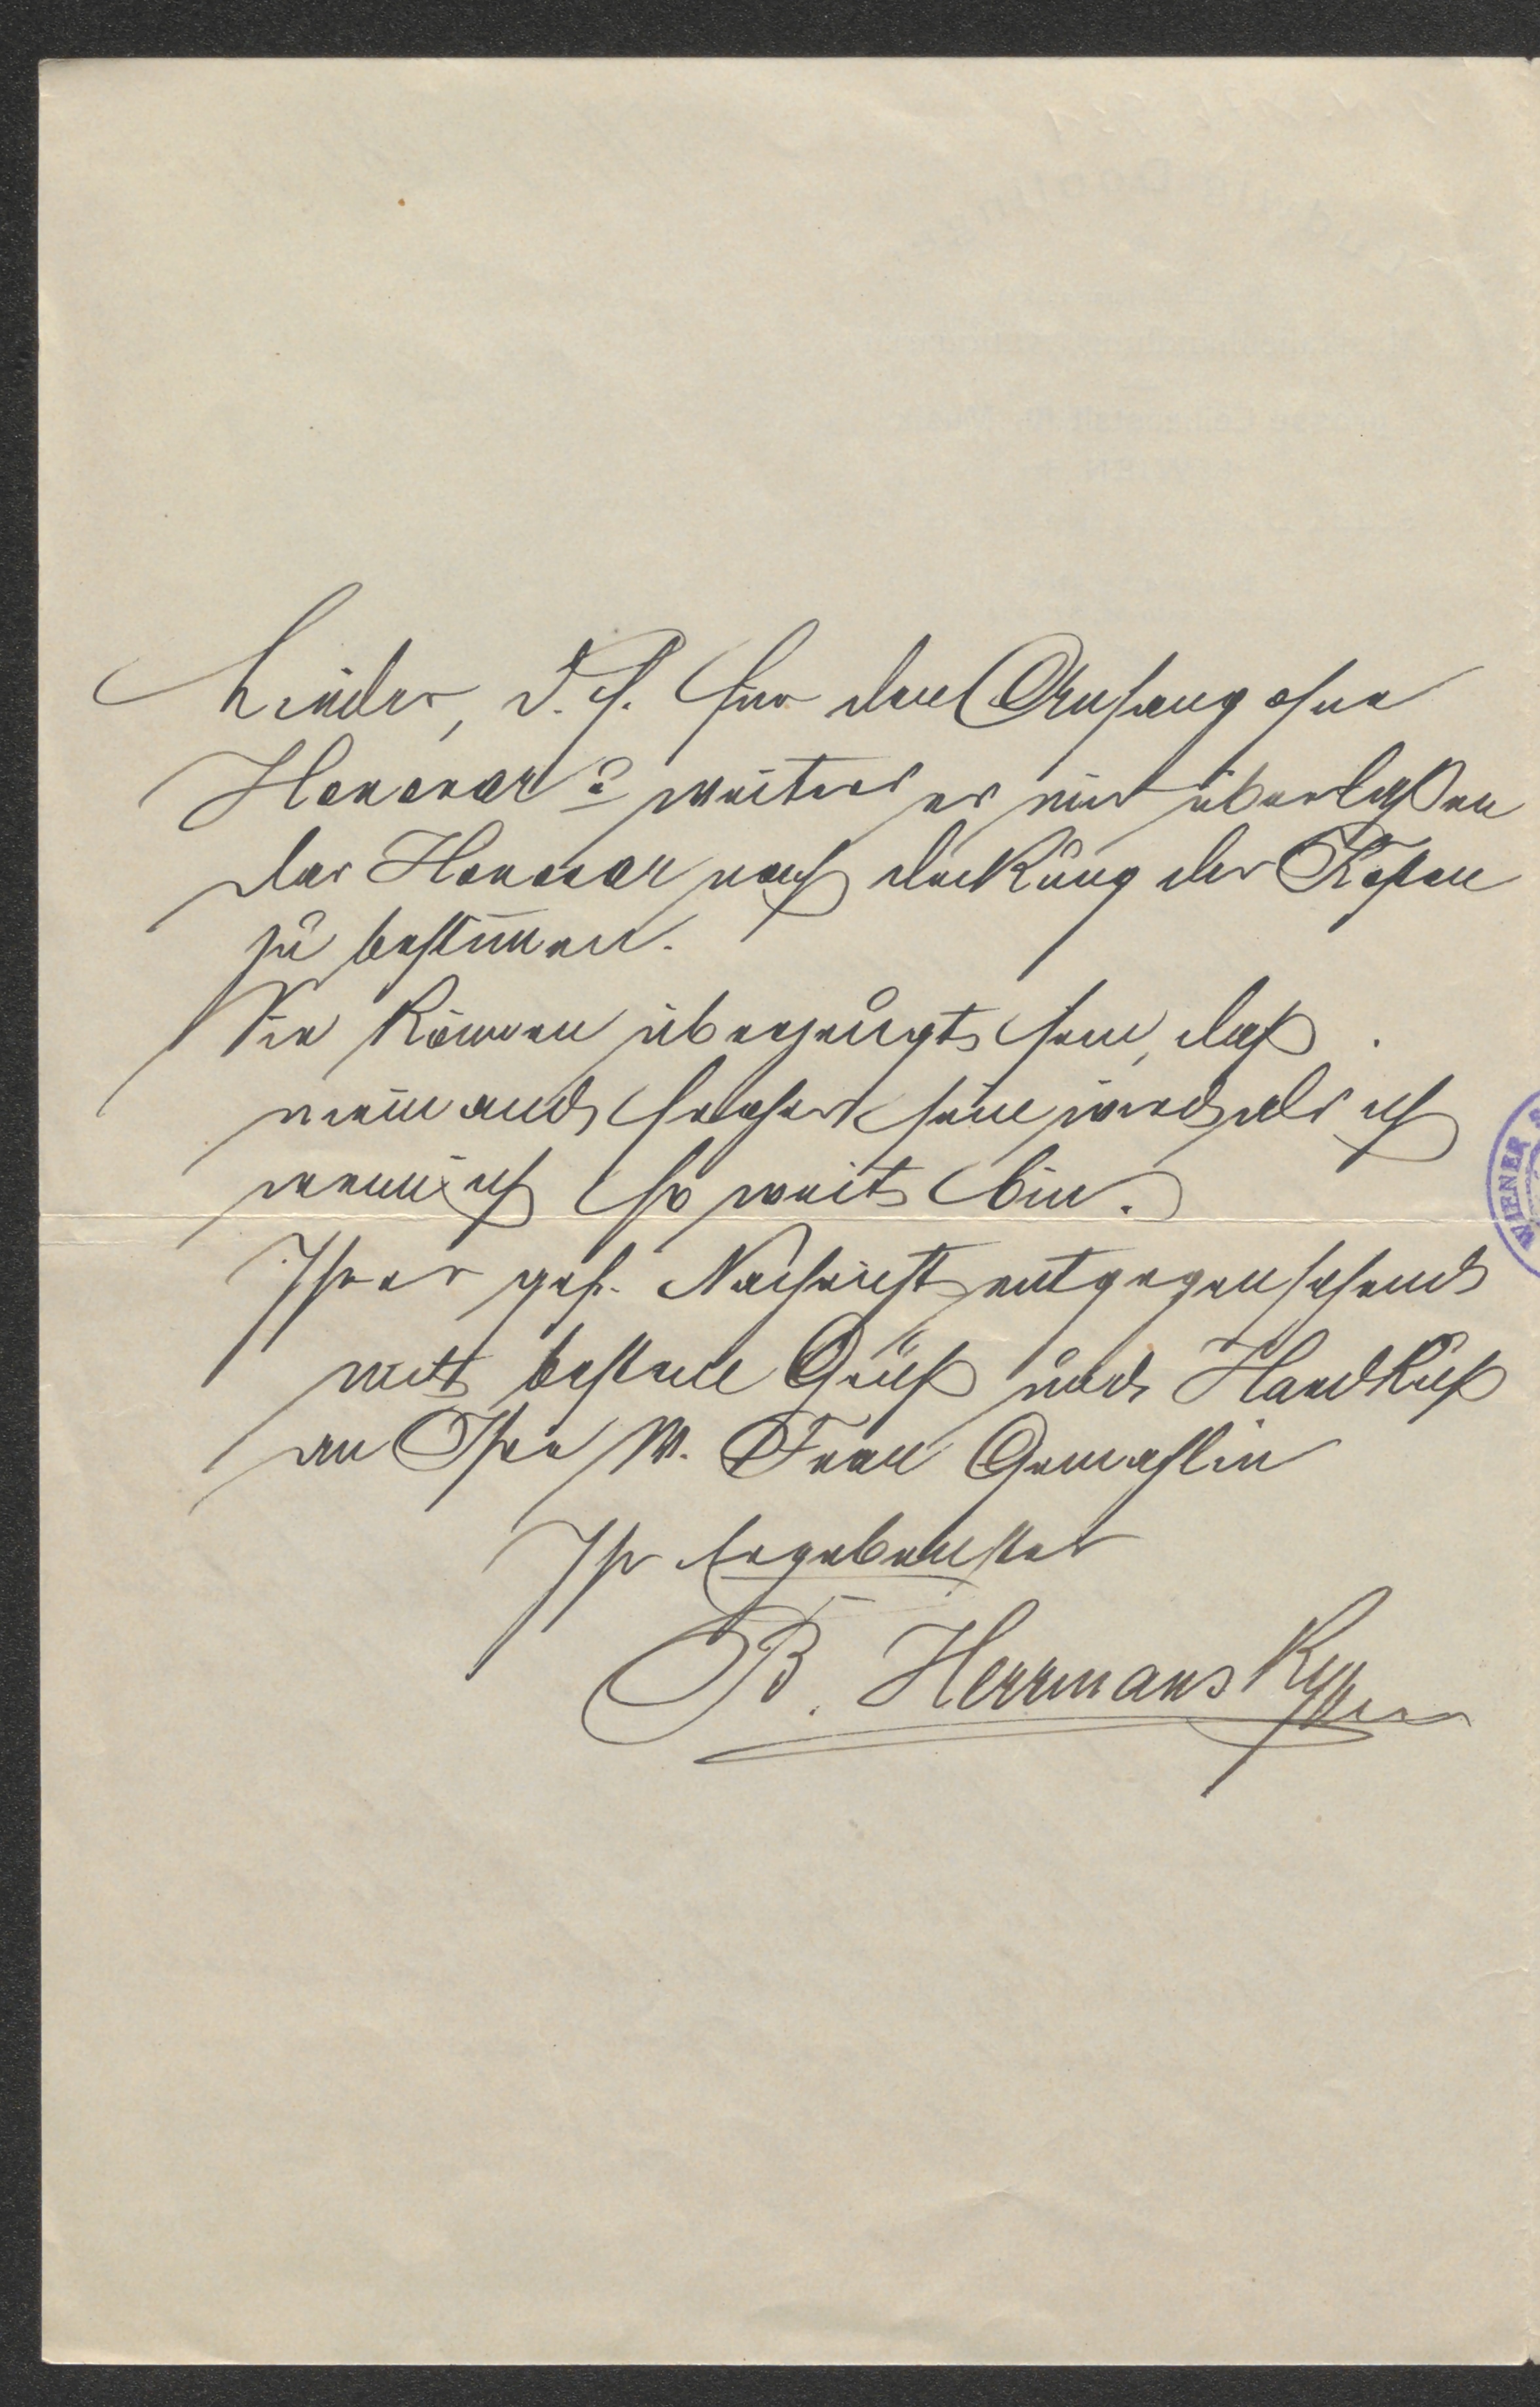 Kinder, d. h. für den Anfang ohne
Honorar & weiters es mir überlaßen
das Honorar nach deckung der Kosten
zu bestimmen.
Sie können überzeugt sein, daß
niemand froher sein wird als ich
wenn ich so weit bin.
Ihrer gesch. Nachricht entgegensehend
mit bestem Gruß und Handkuß
an Ihre w. Frau Gemahlin
Ihr Ergebenster
B. Herrmansky
WIENER